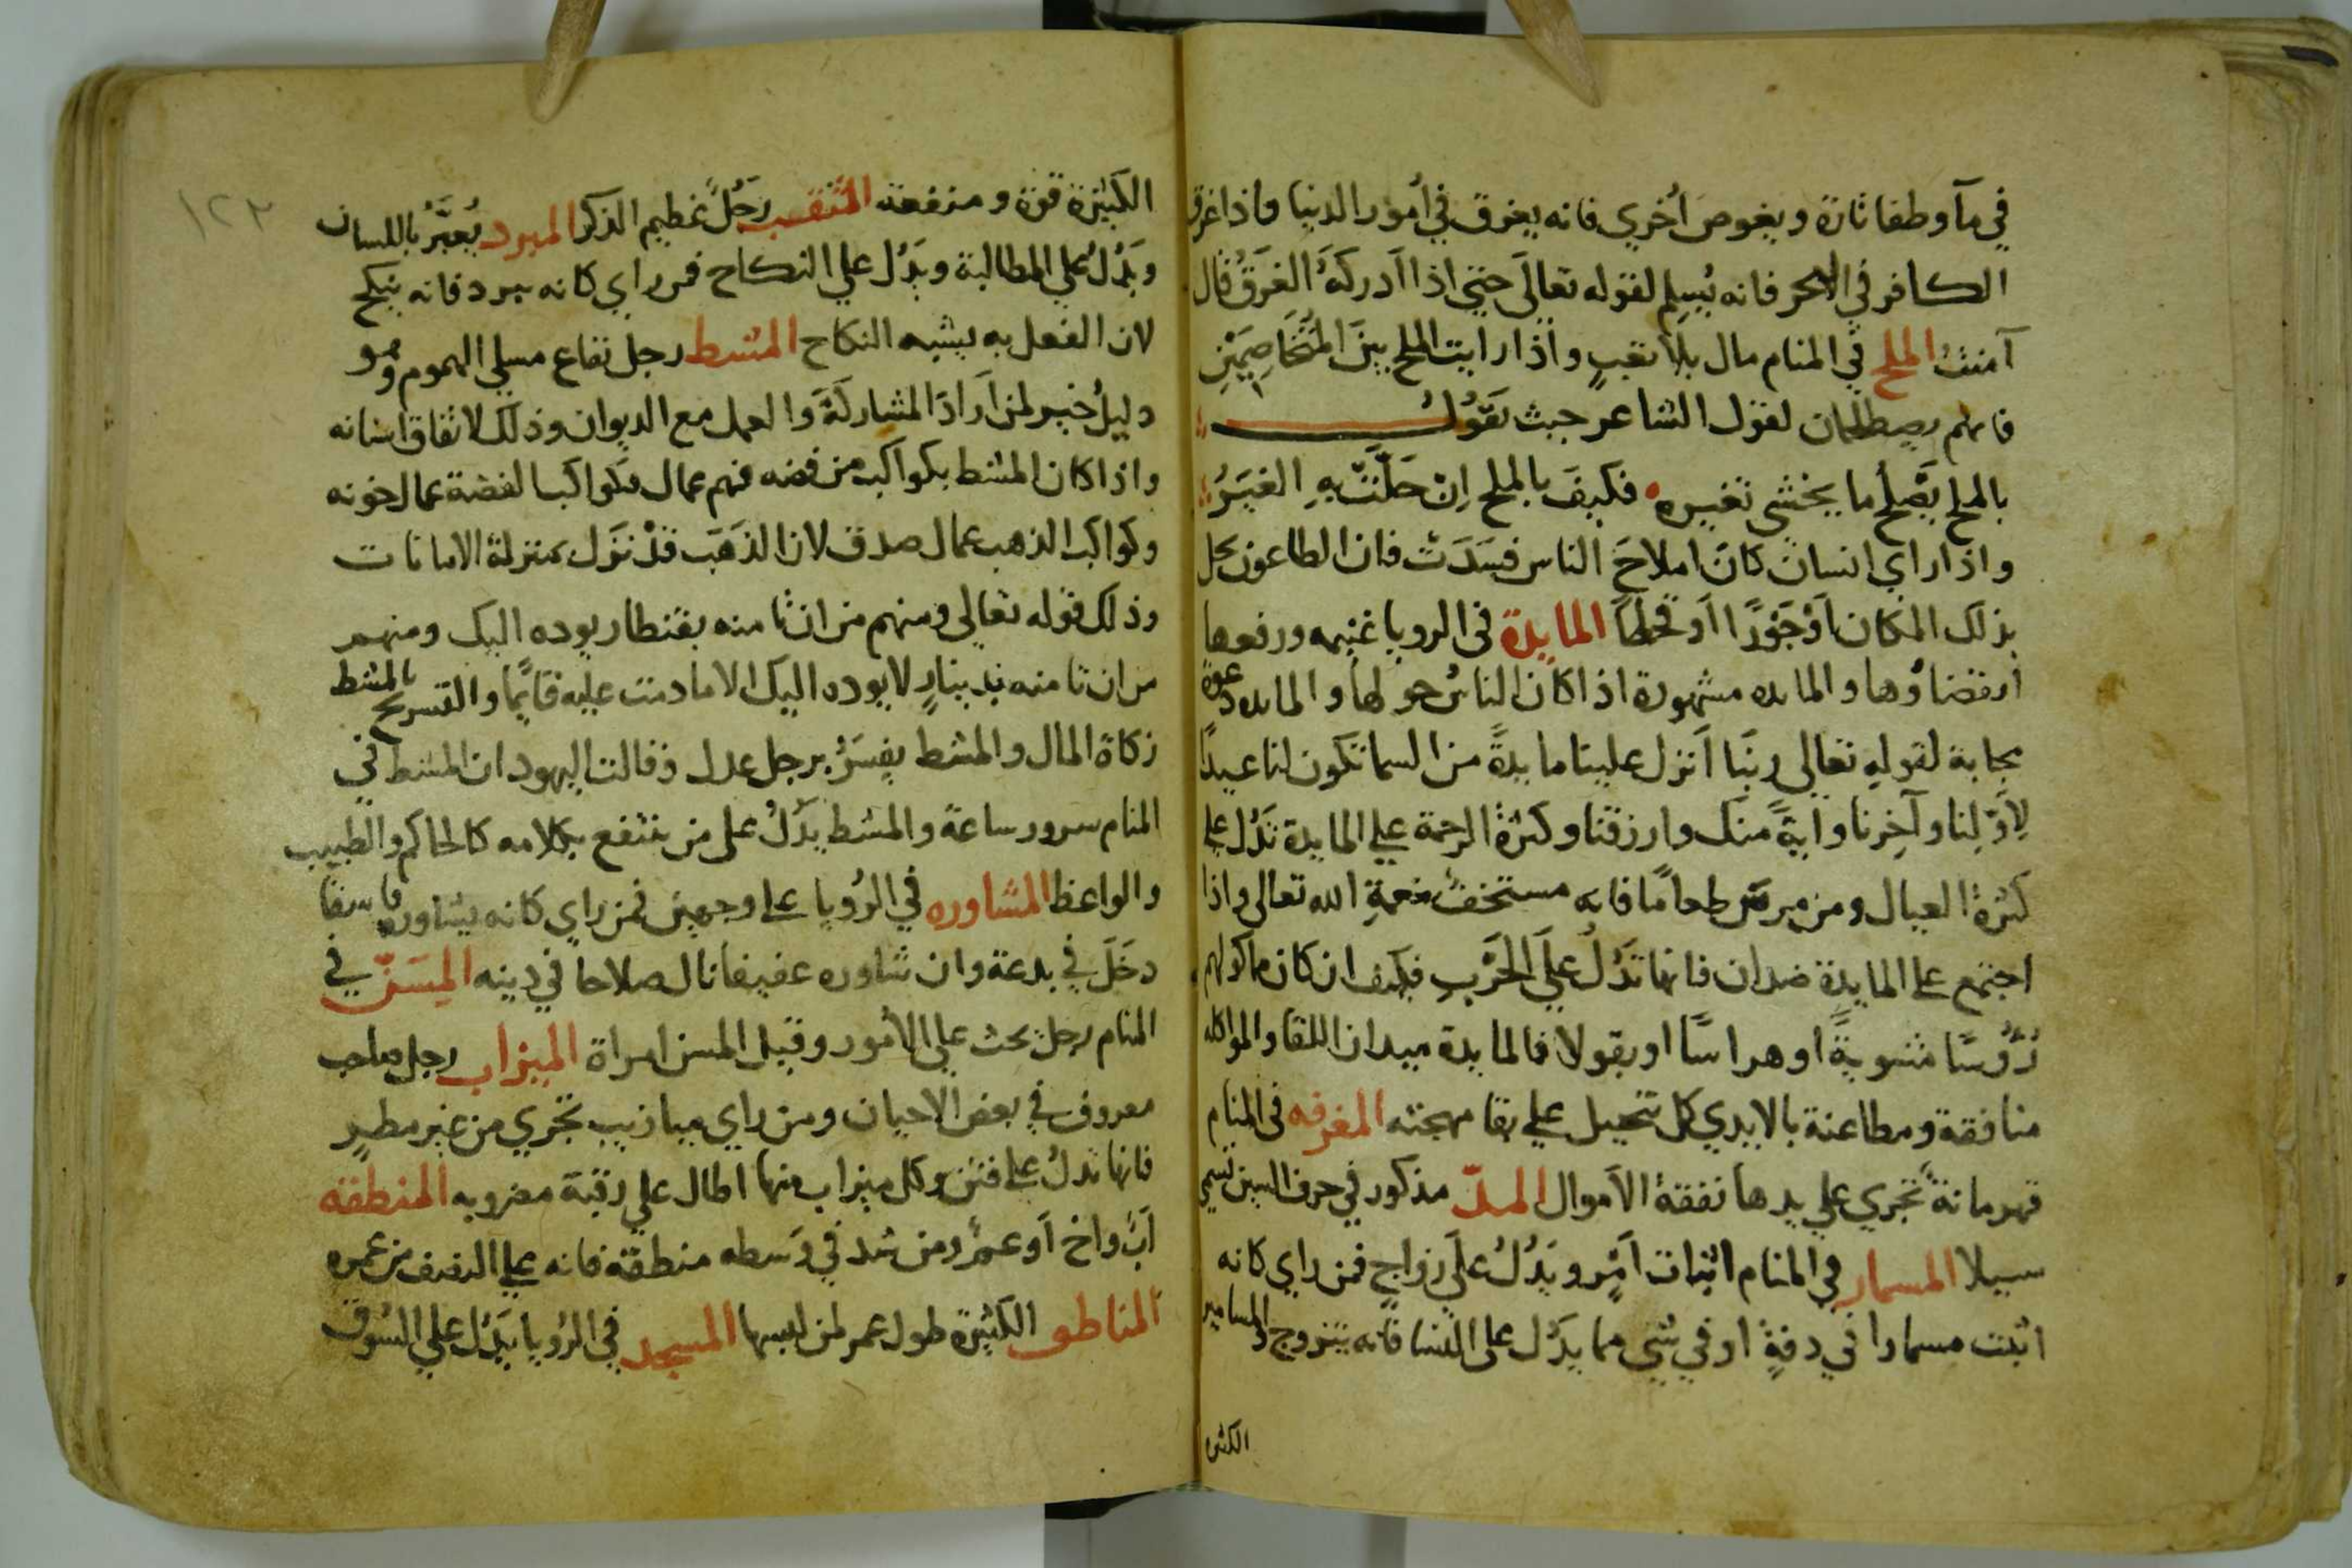 في مآ وطفا تارة ويغوص أخري فانه يغرق في أمور الدنيا واذا غرق
الكافر في البحر فانه يُسلِم لقوله تعالَي حتي اذا اَدركَهُ الغَرَقُ قال
آمنتُ الملح في المنام مال بلا تعبٍ واذا رايت الملح بينَ المتُخَاصِمَيْنِ
فانهم يصطلحان لقول الشاعر حيث يَقوُلُ
بالملح يَصْلُحُ ما يخشي تغيره فكيفَ بالملح اِنْ حَلَّتْ بِهِ الغِيَرُ
واذا راي انسان كانَ املاحَ الناس فسَدَت فان الطاعون يحل
بذلك المكان أوْ جَوْرًا اَو قحطًا المايدة في الرويا غنيمه ورفعها
انقضاؤها والمايده مشهورة اذا كان الناسُ حولها والمايده دعوة
مجابة لقولهِ تعالي ربَنا اَنزل علينا مايدةً من السما تكون لنا عيدًا
لِاَوّلنا وآخِرنا وايةً منك وارزقنا وكثرة الرحمة علي المايدة تَدُل علي
كثرة العيال ومن ميرقس طعامًا فانه مستخفٌ بنعمةِ الله تعالي واذا
اجتمع علي المايدة ضدان فانها تَدُلُ علَي الحَرْبِ فكيف ان كان ماكولهم
رُؤُسًا مشويةً او هراسًا او بقولا فالمايدة ميدان اللقا والمواكله
منافقة ومطاعنة بالايدي كل تحيل علي بقا مهجته المغرفه في المنام
قهرمانة تجري علي يدها نفقة الأموال المدّ مذكور في حرف السين تسمي
سيلا المسمار في المنام اثبات اَمْرٍ ويَدُلُ علَي زواجٍ فمن راي كانه
اثبت مسمارا في دفةٍ او في شي مما يدَل علي النسا فانه يتزوج والمسامير
الكثيره
١٢٣
الكَثيرَة قوة ومنفعة المثقب رَجُلٌ عظيم الذكر المبرد يُعبَّرُ باللسان
ويَدُلُ علي المطالبة ويَدُل علي النكاح فمن راي كانه يبرد فانه ينكح
لان الفعل به يشبه النكاح المشط رجل نفاع مسلي الهموم وهو
دليلُ خير لمن اَرَادَ المشاركَةَ والعمل مع الديوان وذلك لاتفاق اسنانه
واذا كان المشط بكواكب من فضه فهم عمال فكواكب الفضة عمال خونه
وكواكب الذهب عمال صدق لان الذهَبَ قدْ نزَل بمنزلة الامانات
وذلك قوله تعالي ومنهم من ان تامنه بقنطار يوده اليك ومنهم
من ان تامنه بدينارٍ لا يوده اليك الا ما دمت عليه قايمًا والتسريح بالمشط
زكاة المال والمشط يفسَرُ برجل عدل وقالت اليهود ان المشط في
المنام سرور ساعة والمشط يدُلُ علي من ينتفع بكلامه كالحاكم والطبيب
والواعظ المشاوره في الرُويا علي وجهين فمن راي كانه يشاوره فاسقا
دخَلَ في بدعة وان شاوره عفيفا نال صلاحا في دينه المِسَنّ في
المنام رجل يحث علي الأمور وقيل المسن امراة الميزاب رجل صاحب
معروف في بعض الاحيان ومن راي ميازيب تجري من غير مطرٍ
فانها تدلُ علي فتن وكل ميزاب منها اطال علي رقبة مضروبه المنطقه
اَبٌ واخ اَو عمٌ ومن شد في وَسطه منطقة فانه علي النصف من عمره
المناطق الكثيرة طول عمر لمن لبسها المسجد في الرُويا يَدُل علي السُوق